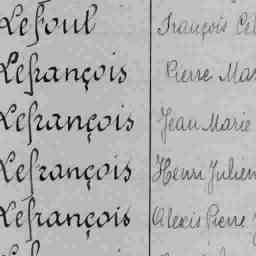 Lefoul François Cél
Lefrançois Pierre Mar
Lefrançois Jean Marie
Lefrançois Henri Julien
Lefrançois Alexis Pierre